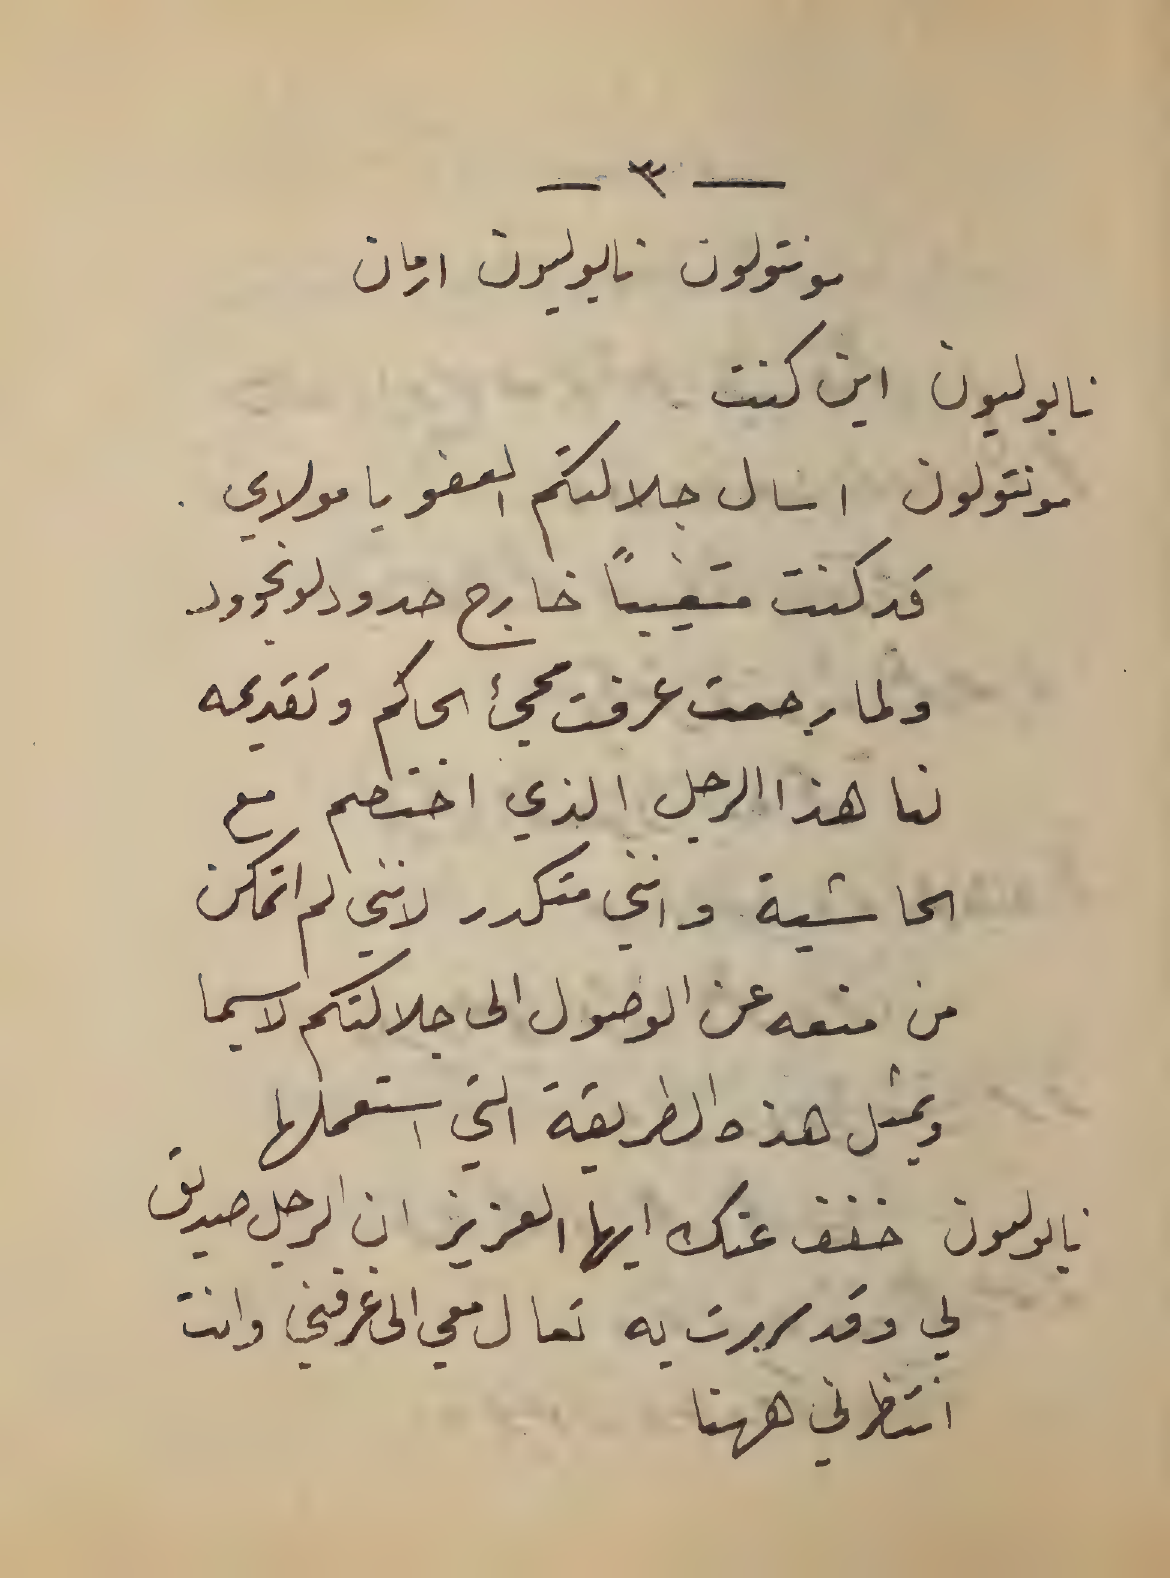 — ٣ —
مونتولون نابوليون ارمان
نابوليون اين كنت
مونتولون اسال جلالتكم العفو يا مولاي
قد كنت متغيباً خارج حدود لونجوود
ولما رجعت عرفت مجئ الحاكم وتقديمه
لنا هذا الرجل الذي اختصم مع
الحاشية وانني متكدر لانني لم اتمكن
من منعه عن الوصول الى جلالتكم لاسيما
وبمثل هذه الطريقة التي استعملها
نابوليون خفف عنك ايها العزيز ان الرجل صديق
لي وقد سررت به تعال معي الى غرفتي وانت
انتظرني ههنا